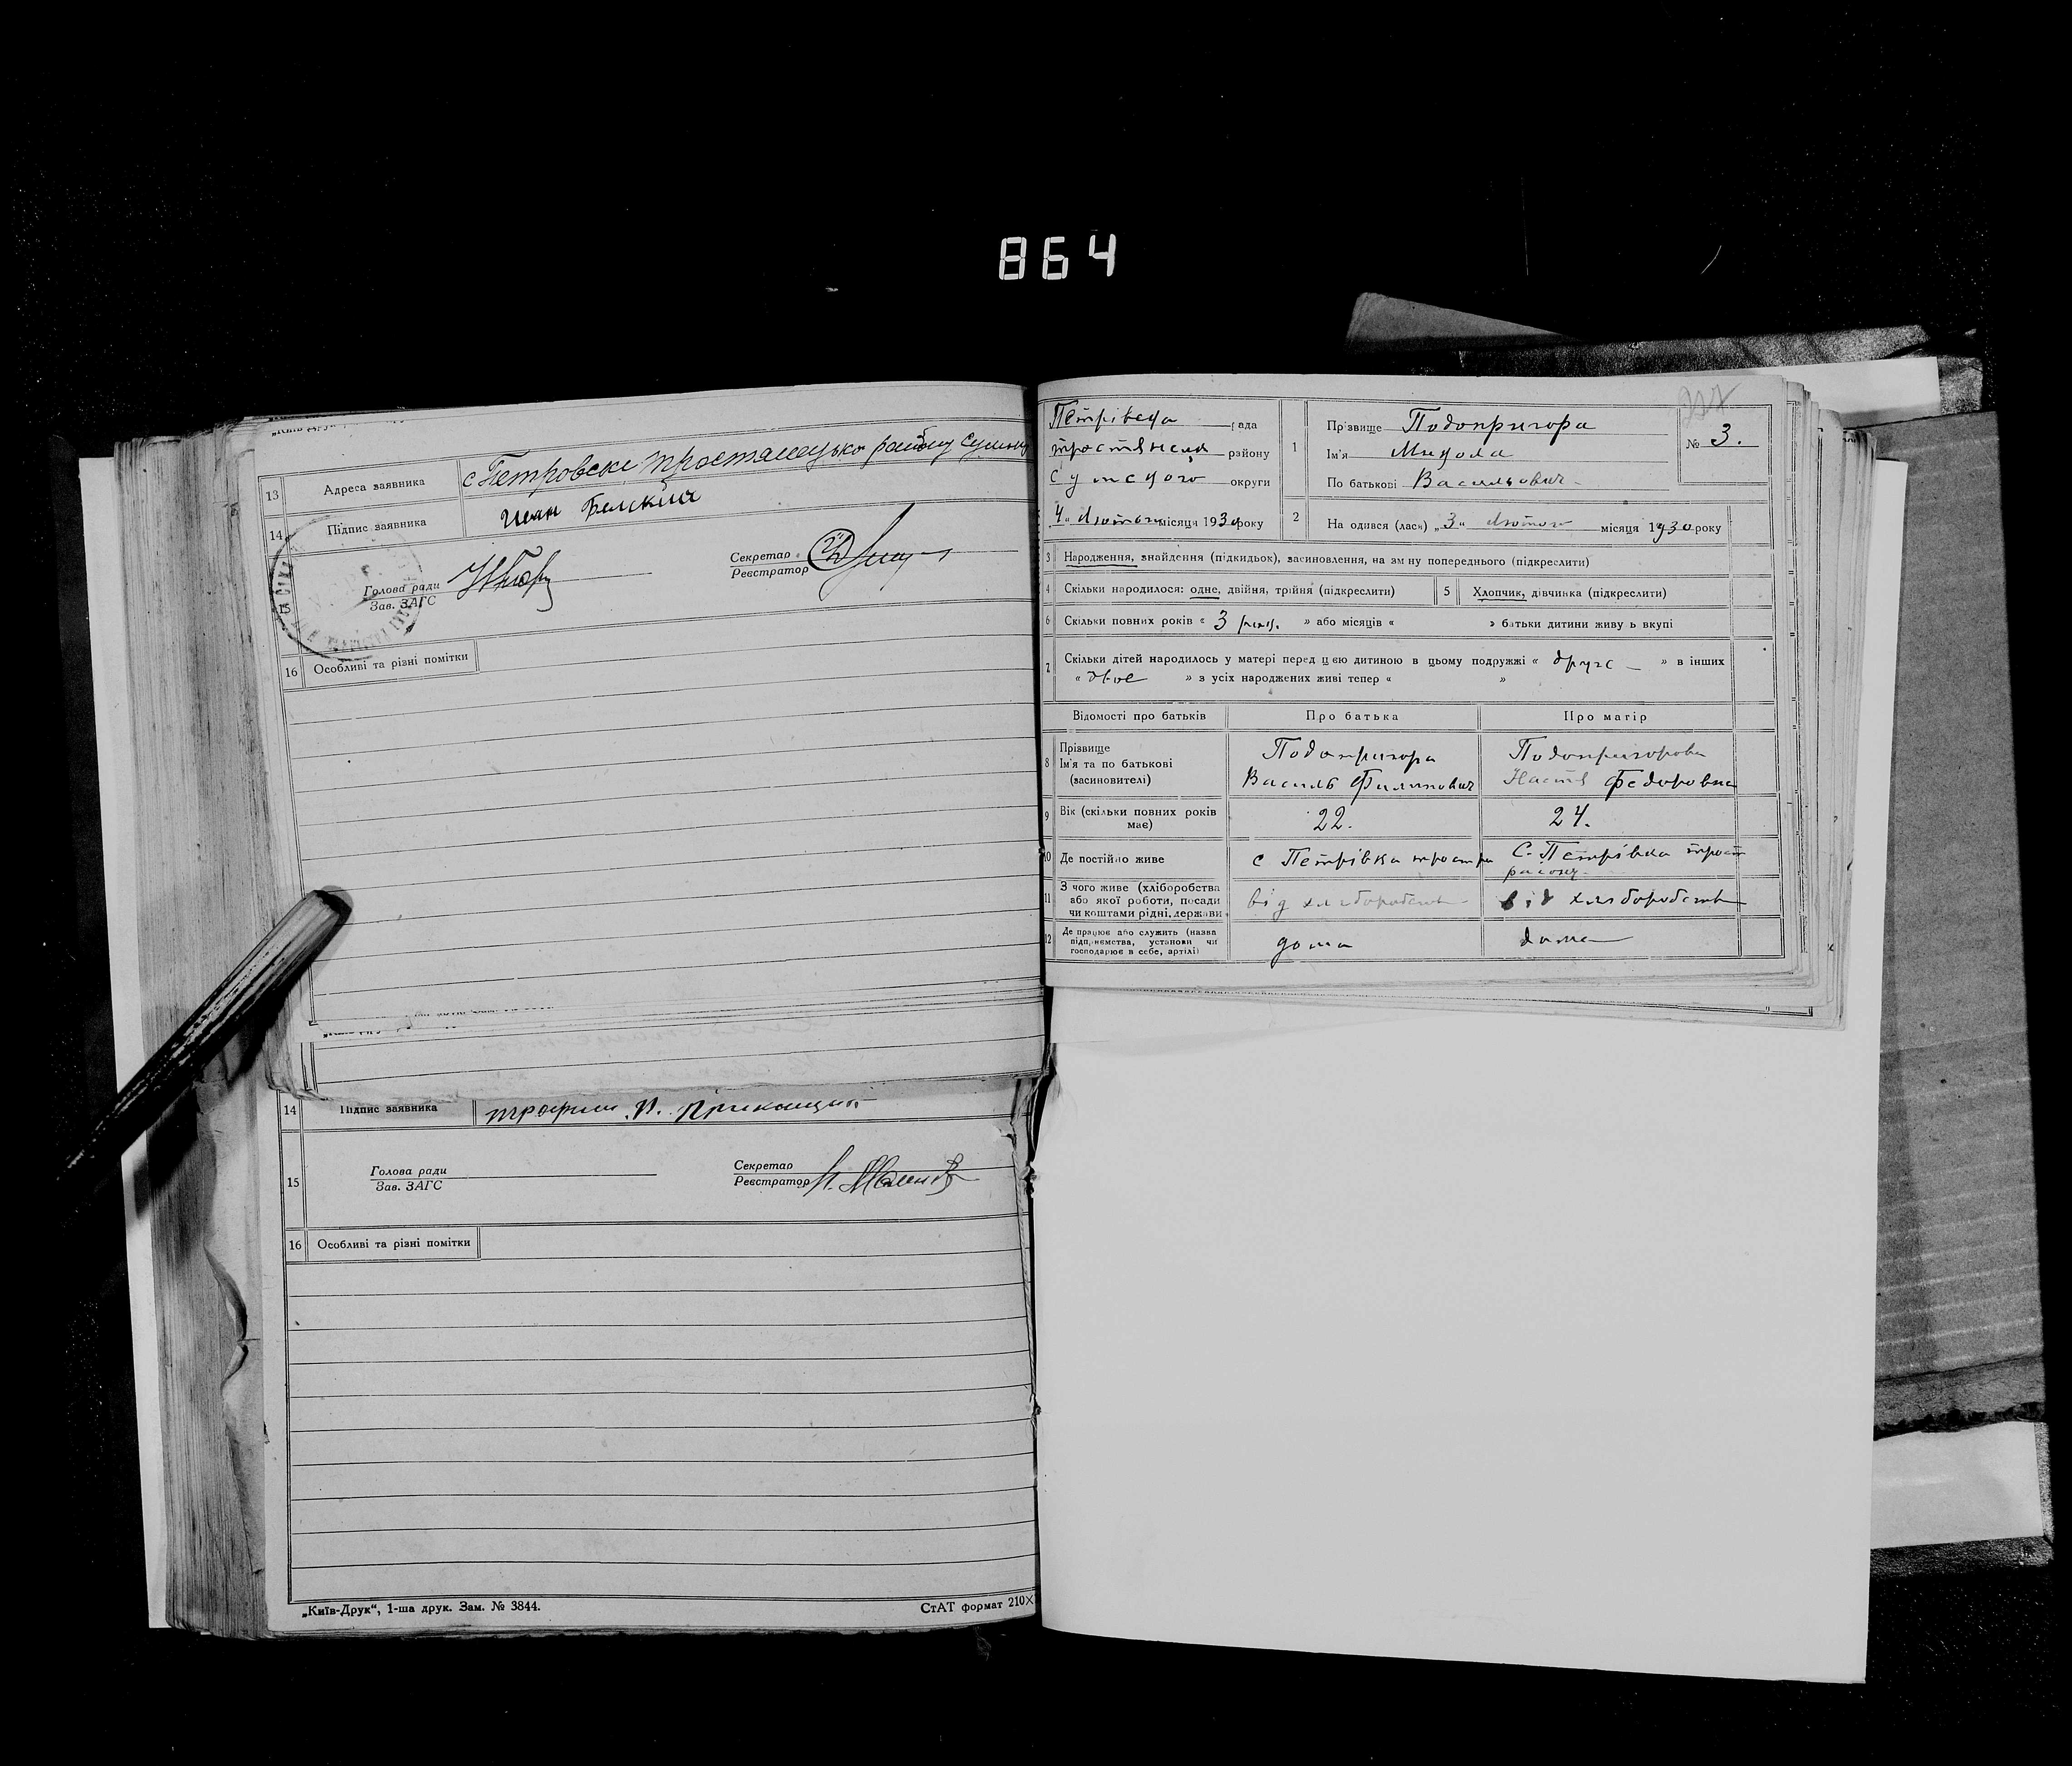 864
13 Адреса заявника с Петровске
14 Підпис заявника Иван
Голова ради
Зав. ЗАГС
Секретар
Реєстратор
15
16 Особливі та різні помітки
14 Підпис заявника
15
Голова ради
Зав. ЗАГС
Секретар
Реєстратор
16 Особливі та різні помітки
„Київ-Друк“, 1-ша друк. Зам. № 3844.
СтАТ формат 210×
рада
району
округи
4 " Лютого місяця 1930 року
1
Прізвище Подопригора
Ім'я Микола
По батькові Васильович
№ 3.
2 На одився (лася) „3" Лютого місяця 1930 року
3 Народження, знайдення (підкидьок), засиновлення, на зм ну попереднього (підкреслити)
4 Скільки народилося: одне, двійня, трійня (підкреслити)
5 Хлопчик, дівчинка (підкреслити)
6 Скільки повних років « 3 рок. » або місяців « » батьки дитини живу ь вкупі
7 Скільки дітей народилось у матері перед цєю дитиною в цьому подружжі « друге » в інших
« двоє » з усіх народжених живі тепер « »
Відомості про батьків
Про батька
Про матір
8 Прізвище
Ім'я та по батькові
(засиновителі)
Подопригора
Василь Филипович
Подопригорова
Настя Федоровна
9 Вік (скільки повних років
має)
22.
24.
10 Де постійно живе
с Петрівка
С. Петрівка трост
району
11 З чого живе (хліборобства
або якої роботи, посади
чи коштами рідні, держави
від
від
12 Де працює або служить (назва
підприємства, установи чи
господарює в себе, артілі)
дома
дома